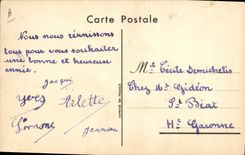 Carte Postale
Vous nous réunissons
tous pour vous souhaiter
une bonne et heureuse
année.
Jacqui
Yves Arlette
Yvonne
Mlle Cécile Demichelis
Chez Mr Gédéon
St Béat
Hte Garonne